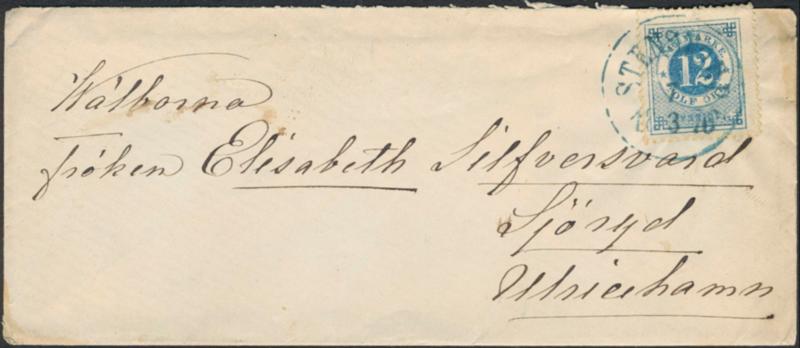 Wälborna
fröken Elisabeth Silfversvärd
Sjöryd
Ulricehamn
FRIMÄRKE
12
TOLF ÖRE
3